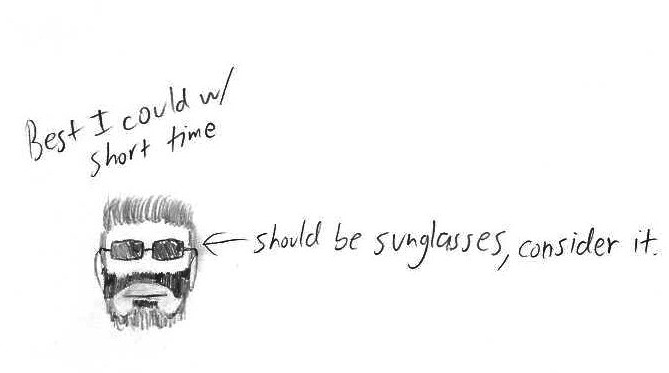 Best I could w/
short time
should be sunglasses, consider it.